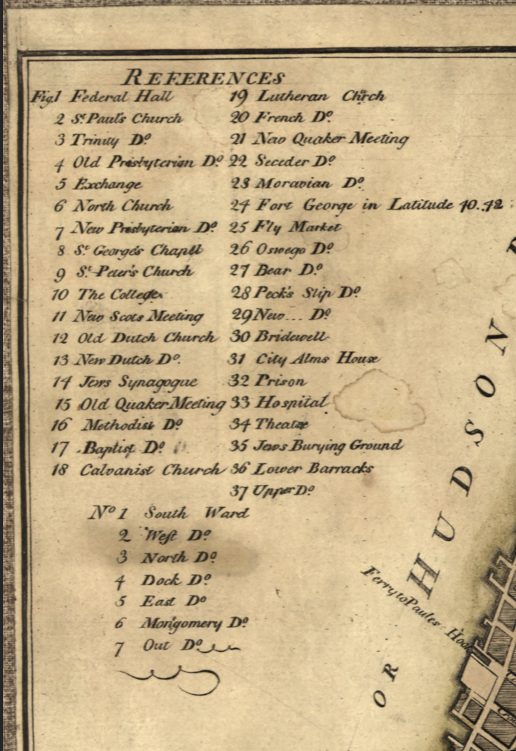 REFERENCES
Fig.1 Federal Hall
2 St. Paul's Church
3 Trinity Do.
4 Old Presbyterian Do.
5 Exchange
6 North Church
7 New Presbyterian Do.
8 St. George's Chapel
9 St. Peter's Church
10 The College
11 New Scots Meeting
12 Old Dutch Church
13 New Dutch Do.
14 Jews Synagogue
15 Old Quaker Meeting
16 Methodist Do.
17 Baptist Do.
18 Calvanist Church
19 Lutheran Church
20 French Do.
21 New Quaker Meeting
22 Seceder Do.
23 Moravian Do.
24 Fort George in Latitude 40..42
25 Fly Market
26 Oswego Do.
27 Bear Do.
28 Peck's Slip Do.
29 New... Do.
30 Bridewell
31 City Alms House
32 Prison
33 Hospital
34 Theatre
35 Jews Burying Ground
36 Lower Barracks
37 Upper Do.
No 1 South Ward
2 West Do.
3 North Do.
4 Dock Do.
5 East Do
6 Montgomery Do.
7 Out Do.
OR HUDSON
Ferry to Paules Hook